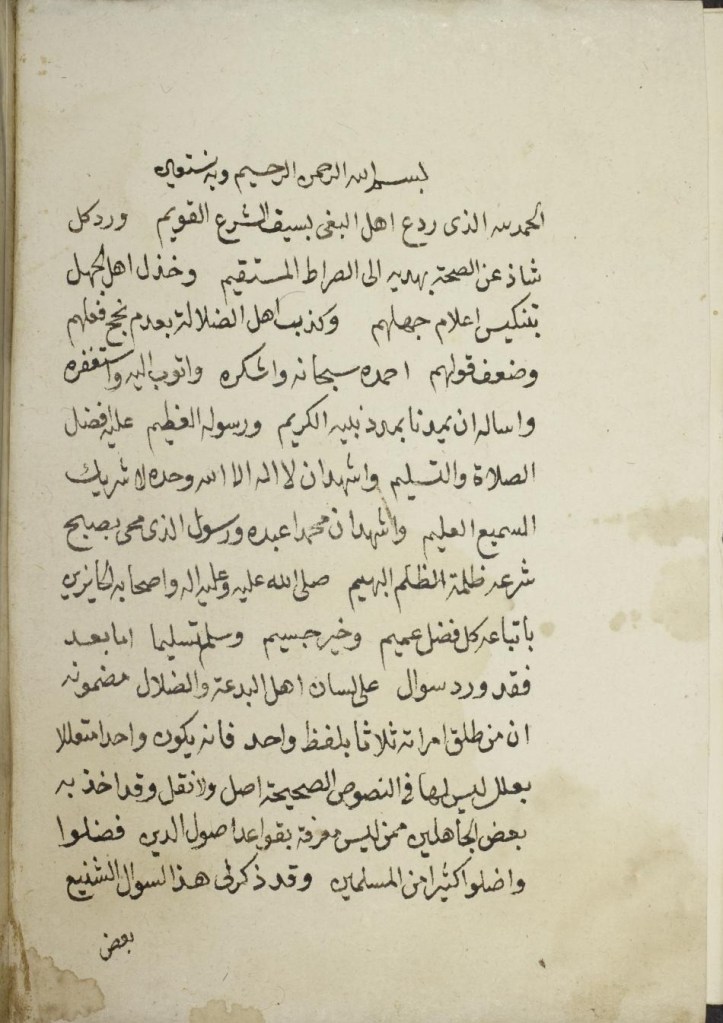 بسم الله الرحمن الرحيم وبه نستعين
الحمد لله الذى ردع اهل البغى بسيف الشرع القويم وردكل
شاذ عن الصحة بهديه الى الصراط المستقيم وخذل اهل الجهل
بتنكيس اعلام جهلهم وكذب اهل الضلالة بعدم نجح فعلهم
وضعف قولهم احمده سبحانه واشكره واتوب اليه واستغفره
واساله ان يمدنا بمدد نبيه الكريم ورسوله العظيم عليه افضل
الصلاة والتسليم واشهد ان لا اله الا الله وحده لا شريك
السميع العليم واشهد ان محمدا عبده ورسول الذى محى بصبح
شرعه ظلمة الظلم البهيم صلى الله عليه وعليه اله واصحابه الحايزين
باتباعه كل فضل عميم وخير جسيم وسلم تسليما اما بعد
فقد ورد سوال على لسان اهل البدعة والضلال مضمونه
ان من طلق امراته ثلاثا بلفظ واحد فانه يكون واحدا متعللا
بعلل ليس لها فى النصوص الصحيحة اصل ولا نقل وقد اخذ به
بعض الجاهلين ممن ليس معرفة بقواعد اصول الدين فضلوا
واضلوا كثيرا من المسلمين وقد ذكر لى هذا السوال الشنيع
بعض